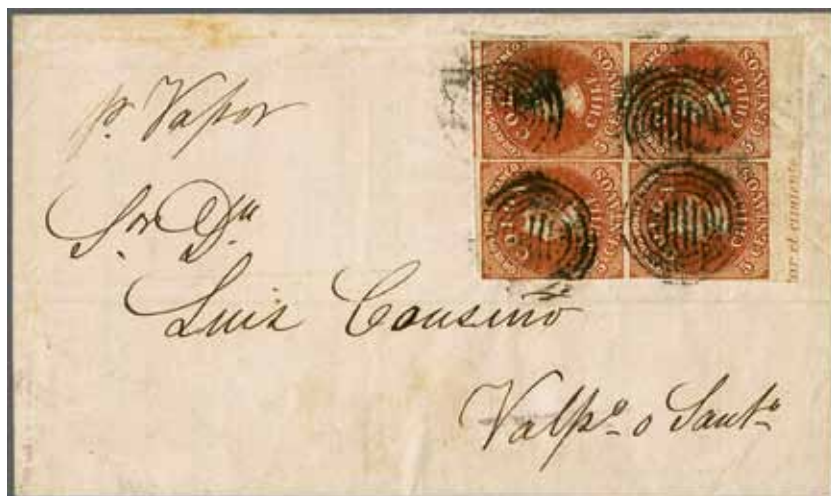 p. Vapor
Sor Dn
Luis Cousiño
Valpo. o Santo.
COLON
CHILE
5 CENTAVOS
COLON
CHILE
5 CENTAVOS
COLON
CHILE
5 CENTAVOS
COLON
CHILE
5 CENTAVOS